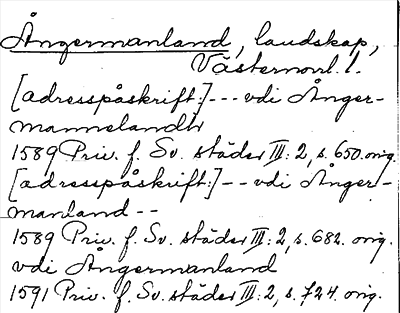 Ångermanland, landskap,
Västernorrl. l.
[adresspåskrift:] --- vdi Ånger-
mannelandh
1589 Priv. f. Sv. städer III: 2, s. 650. orig.
[adresspåskrift:] -- vdi Ånger-
manland --
1589 Priv. f. Sv. städer III: 2, s. 682. orig.
vdi Ångermanland
1591 Priv. f. Sv. städer III: 2, s. 724. orig.